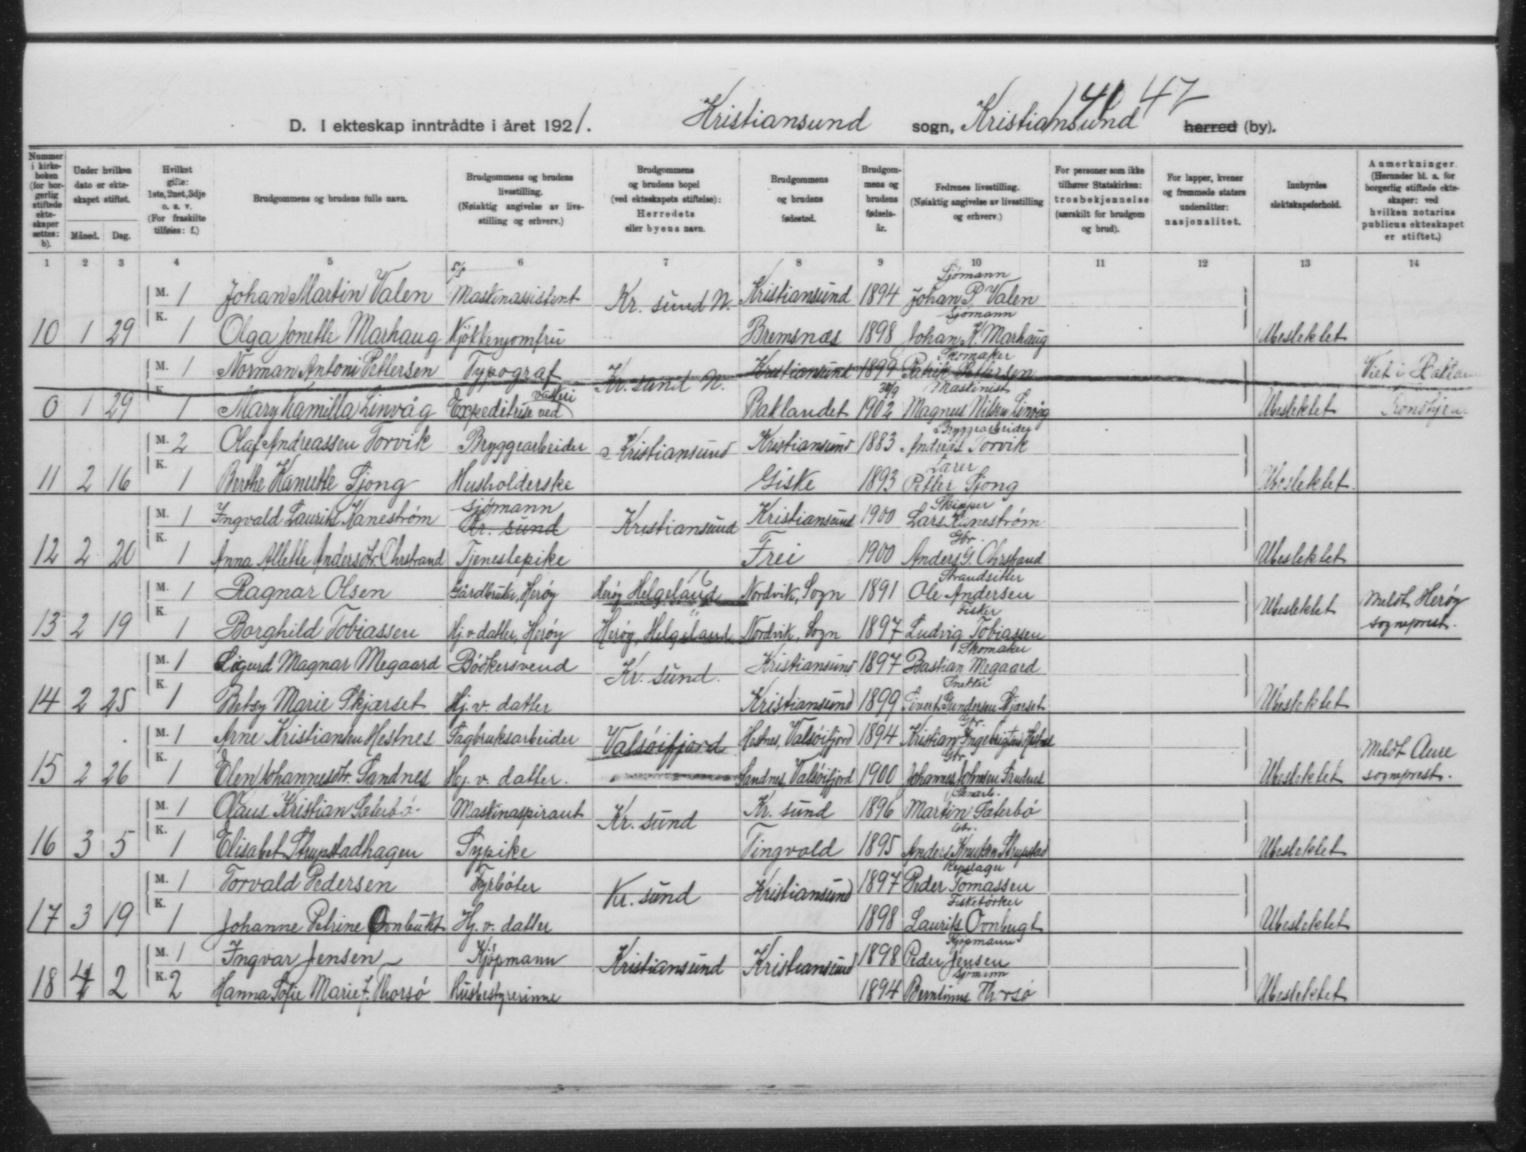 141 47
D. I ekteskap inntrådte i året 1921. Kristiansund sogn, Kristiansund herred (by).
Nummer i kirkeboken (for borgerlig stiftede ekteskaper settes: b). Under hvilken dato er ekteskapet stiftet. Måned. Dag. Hvilket gifte: 1ste, 2net, 3dje o. s. v. (For fraskilte tilføies: f.) Brudgommens og brudens fulle navn. Brudgommens og brudens livsstilling. (Nøiaktig angivelse av livsstilling og erhverv.) Brudgommens og brudens bopel (ved ekteskapets stiftelse): Herredets eller byens navn. Brudgommens og brudens fødested. Brudgommens og brudens fødselsår. Fedrenes livsstilling. (Nøiaktig angivelse av livsstilling og erhverv.) For personer som ikke tilhører Statskirken: trosbekjennelse (særskilt for brudgom og brud). For lapper, kvener og fremmede staters undersåtter: nasjonalitet. Innbyrdes slektskapsforhold. Anmerkninger. (Herunder bl. a. for borgerlig stiftede ekteskaper: ved hvilken notarius publicus ekteskapet er stiftet.)
1 2 3 4 5 6 7 8 9 10 11 12 13 14
M. 1 Johan Martin Valen s/s Maskinassistent Kr. sund N. Kristiansund 1894 Sjömann Johan P. Valen
10 1 29 K. 1 Olga Jonette Marhaug Kjökkenjomfru Bremsnæs 1898 Sjömann Johan K. Marhaug Ubeslektet
M. 1 Norman Antoni Pettersen Typograf Kr. sund N. Kristiansund 1899 Skomaker Patrik Pettersen Viet i Baklan
0 1 29 K. 1 Mary Kamilla Linvåg Expeditrise ved Baklandet 1902 Maskinist Magnus Nilsen Linvåg Ubeslektet Trondhjem
M. 2 Olaf Andreassen Torvik Bryggearbeider Kristiansund Kristiansund 1883 Bryggearbeider Andreas Torvik
11 2 16 K. 1 Berthe Hansette Sjong Husholderske Giske 1893 Lærer Petter Sjong Ubeslektet
M. 1 Ingvald Laurits Kanestrøm Sjømann Kr. sund Kristiansund Kristiansund 1900 Skipper Lars Kanestrøm
12 2 20 K. 1 Anna Allette Andersdtr. Ohrstrand Tjenestepike Frei 1900 Gbr. Anders G. Ohrstrand Ubeslektet
M. 1 Ragnar Olsen Gårdbruker, Herøy Herøy Helgeland Nordvik, Sogn 1891 Strandsitter Ole Andersen
13 2 19 K. 1 Borghild Tobiassen Hj. v. datter, Herøy Herøy, Helgeland Nordvik, Sogn 1897 Fisker Ludvig Tobiassen Ubeslektet Meldt Herøy sogneprest.
M. 1 Sigurd Magnar Megaard Bödkersvend Kr. sund. Kristiansund 1897 Skomaker Bastian Megaard
14 2 25 K. 1 Betsy Marie Skjarset Hj. v. datter Kristiansund 1899 Sivert Gundersen Skjarset Ubeslektet
M. 1 Arne Kristiansen Hestnes Sagbruksarbeider Valsøifjord Hestnes, Valsöifjord 1894 Gbr. Kristian Ingebrigtsen Hestnes
15 2 26 K. 1 Elen Johannesdtr. Sandnes Hj. v. datter. Sandnes, Valsöifjord 1900 Gbr. Johannes Johnsen Sandnes Ubeslektet Meldt Aure sogneprest.
M. 1 Olaus Kristian Sæterbö Maskinaspirant Kr. sund Kr. sund 1896 Martin Sæterbö
16 3 5 K. 1 Elisabet Strupstadhagen Sypike Tingvold 1895 Gbr. Anders Knutsen Strupstad Ubeslektet
M. 1 Torvald Pedersen Fyrböter Kr. sund Kristiansund 1897 Repslager Peder Tomassen
17 3 19 K. 1 Johanne Petrine Ovnbukt Hj. v. datter 1898 Laurits Ovnbugt Ubeslektet
M. 1 Ingvar Jensen Kjöpmann Kristiansund Kristiansund 1898 Kjöpmann Peder Jensen
18 4 2 K. 2 Hanna Sofie Marie F. Thorsö Husbestyrerinne 1894 Sjömann Berntinus Thorsö Ubeslektet